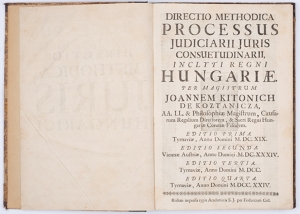 DIRECTIO METHODICA
PROCESSUS
JUDICIARII JURIS
CONSUETUDINARII,
INCLYTI REGNI
HUNGARIÆ
PER MAGISTRUM
JOANNEM KITONICH
DE KOZTANICZA,
AA. LL. & Philosophiæ Magistrum, Causa-
rum Regalium Directorem, & Sacri Regni Hun-
gariæ Coronæ Fiscalem.
EDITIO PRIMA
Tyrnaviæ, Anno Domini M.DC.XIX.
EDITIO SECUNDA
Viennæ Austriæ, Anno Domini M.DC.XXXIV.
EDITIO TERTIA
Tyrnaviæ, Anno Domini M.DCC.
EDITIO QUARTA
Tyrnaviæ, Anno Domini M.DCC.XXIV.